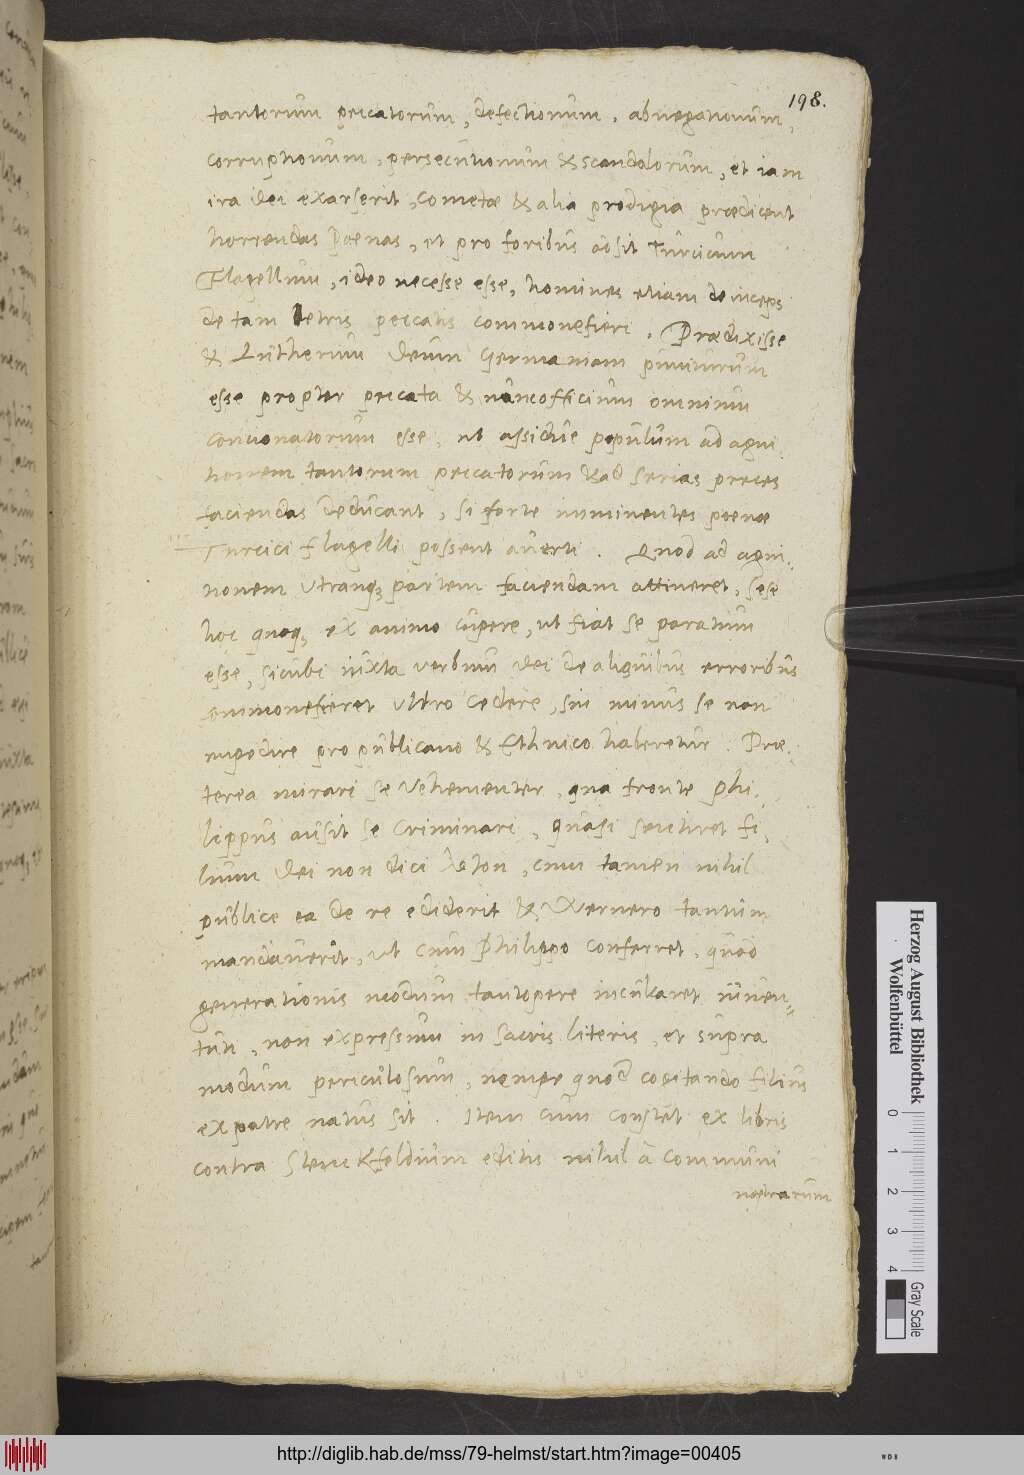 198.
tantorum peccatorum, defectionum, abnegationum,
corruptionum, persecutionum & scandalorum, et iam
ira Dei exarserit, cometæ & alia prodigia prædicent
horrendas poenas, et pro foribus adsit Turcicum
Flagellum, ideo necesse esse, homines etiam deinceps
de tam tetris peccatis commonefieri. Prædixisse
& Lutherum Deum Germaniam puniturum
esse propter peccata & nunc officium omnium
concionatorum esse, ut assidue populum ad agni
tionem tantorum peccatorum & ad serias preces
faciendas deducant, si forte imminentes poenæ
Turcici flagelli possent averti. Quod ad agni,
tionem utranq; partem faciendam attineret, sese
hoc quoq; ex animo cupere, ut fiat se paratum
esse, sicubi iuxta verbum Dei de aliquibus erroribus
commonefieret ultro cedere, sin minus se non
impedire pro publicano & Ethnico haberetur. Præ,
terea mirari se vehementer, qua fronte Phi,
lippus ausit se criminari, quasi sentiret fi,
lium Dei non dici λόγον, cum tamen nihil
publice ea de re ediderit & Wernero tantum
mandaverit, ut cum Philippo conferret, quod
generationis modum tantopere inculcaret iuven=
tuti, non expressum in sacris literis, et supra
modum periculosum, nempe quod cogitando filius
ex patre natus sit. Item cum constet ex libris
contra Stenckfeldium editis nihil à communi
nostrarum
Herzog August Bibliothek
Wolfenbüttel
0 1 2 3 4
Gray Scale
http://diglib.hab.de/mss/79-helmst/start.htm?image=00405